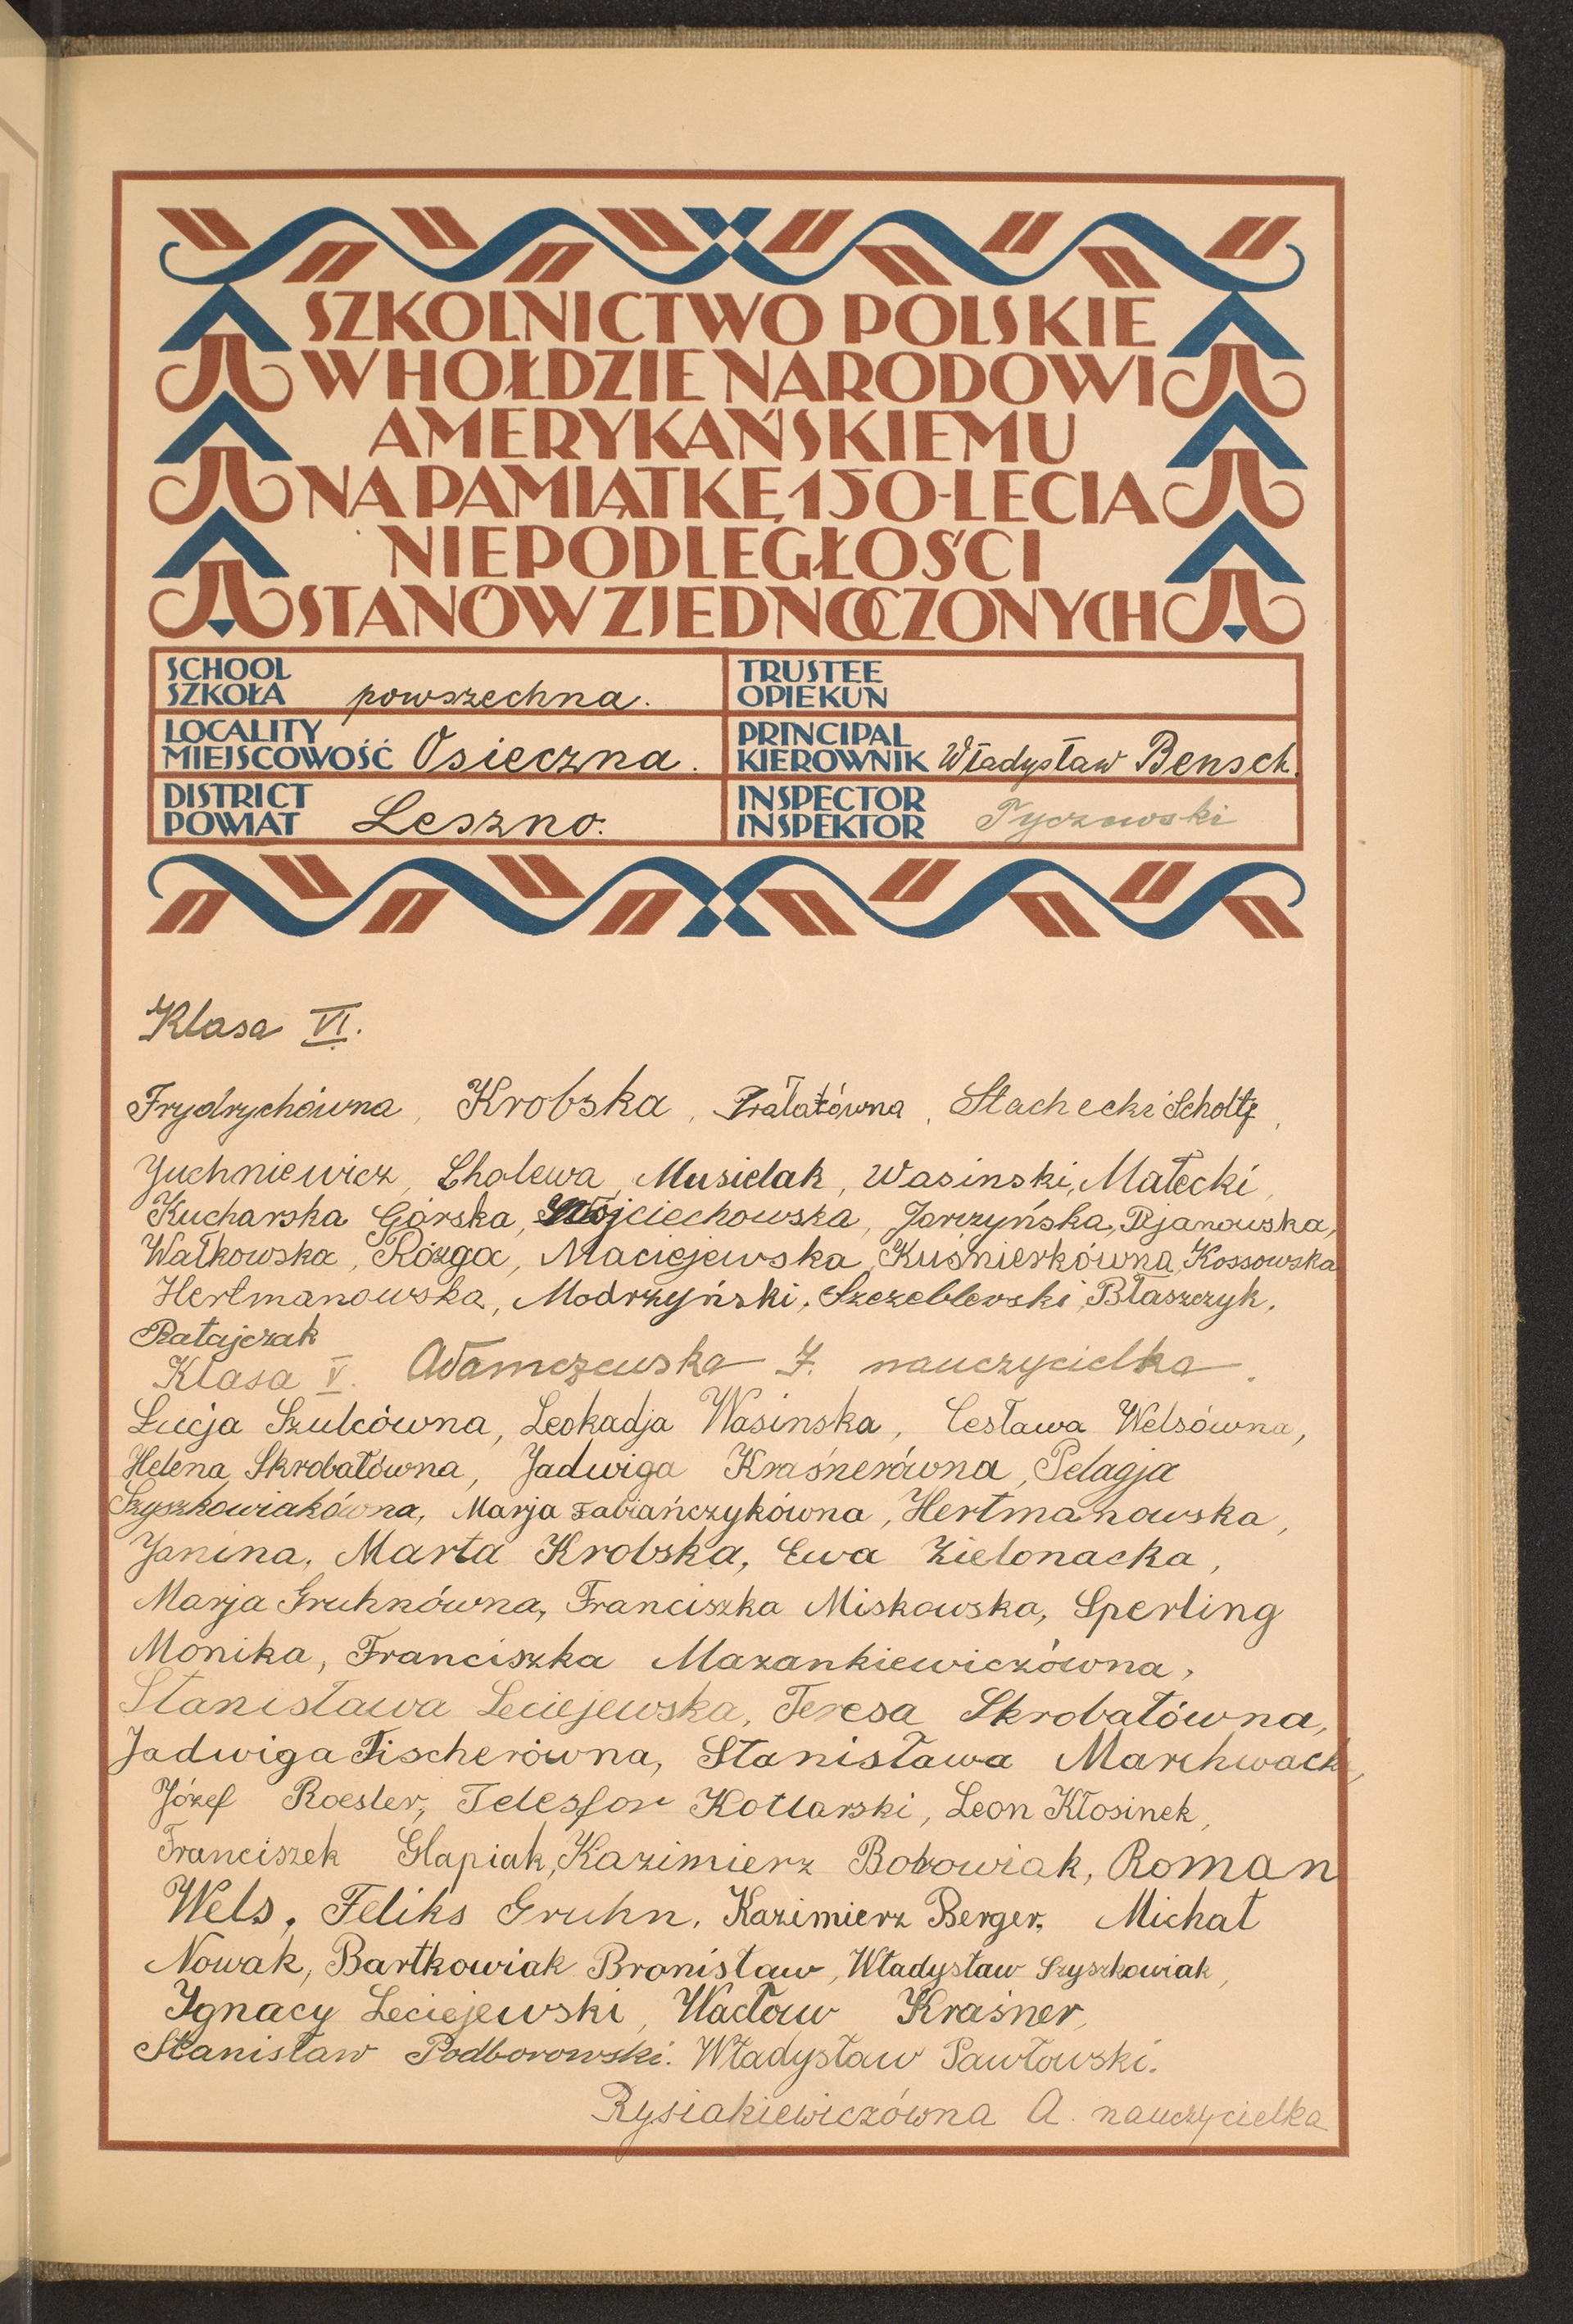 SZKOLNICTWO POLSKIE
W HOŁDZIE NARODOWI
AMERYKAŃSKIEMU
NA PAMIĄTKĘ 150-LECIA
NIEPODLEGŁOŚCI
STANÓW ZJEDNOCZONYCH
SCHOOL
SZKOŁA powszechna.
TRUSTEE
OPIEKUN
LOCALITY
MIEJSCOWOŚĆ Osieczna.
PRINCIPAL
KIEROWNIK Władysław Bensch.
DISTRICT
POWIAT Leszno.
INSPECTOR
INSPEKTOR Tyczewski
Klasa VI.
Frydrychówna, Krobska, Prałatówna, Stachecki Scholtz,
Juchniewicz, Cholewa, Musielak, Wasinski, Małecki,
Kucharska Górska, Wojciechowska, Jarczyńska, Pijanowska,
Wałkowska, Rózga, Maciejewska, Kuśnierkówna, Kossowska
Hertmanowska, Modrzyński, Szczeblewski, Błaszczyk,
Ratajczak
Klasa V. Adamczewska J. nauczycielka.
Łucja Szulcówna, Leokadja Wasinska, Cesława Welsówna,
Helena Skrobałówna, Jadwiga Kraśnerówna, Pelagja
Szyszkowiakówna, Marja Fabiańczykówna, Hertmanowska,
Janina, Marta Krobska, Ewa Zielonacka,
Marja Gruhnówna, Franciszka Miskowska, Sperling
Monika, Franciszka Mazankiewiczówna,
Stanisława Leciejewska, Teresa Skrobałówna,
Jadwiga Fischerówna, Stanisława Marchwacka,
Józef Roesler, Telesfor Kotlarski, Leon Kłosinek,
Franciszek Glapiak, Kazimierz Borowiak, Roman
Wels, Feliks Gruhn, Kazimierz Berger, Michał
Nowak, Bartkowiak Bronisław, Władysław Szyszkowiak,
Ignacy Leciejewski, Wacław Kraśner,
Stanisław Podborowski. Władysław Pawłowski.
Rysiakiewiczówna A. nauczycielka